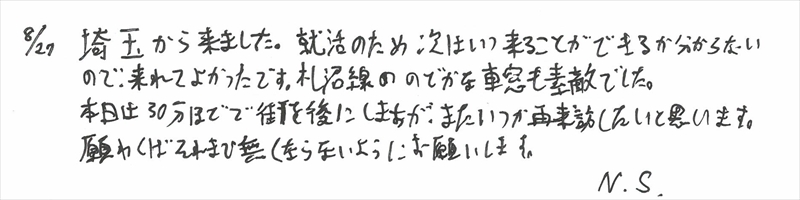 8/27 埼玉から来ました。就活のため次はいつ来ることができるか分からない
ので、来れてよかったです。札沼線ののどかな車窓も素敵でした。
本日は30分ほどで街を後にしますが、またいつか再来訪したいと思います。
願わくばそれまで無くならないようにお願いします。
N.S.